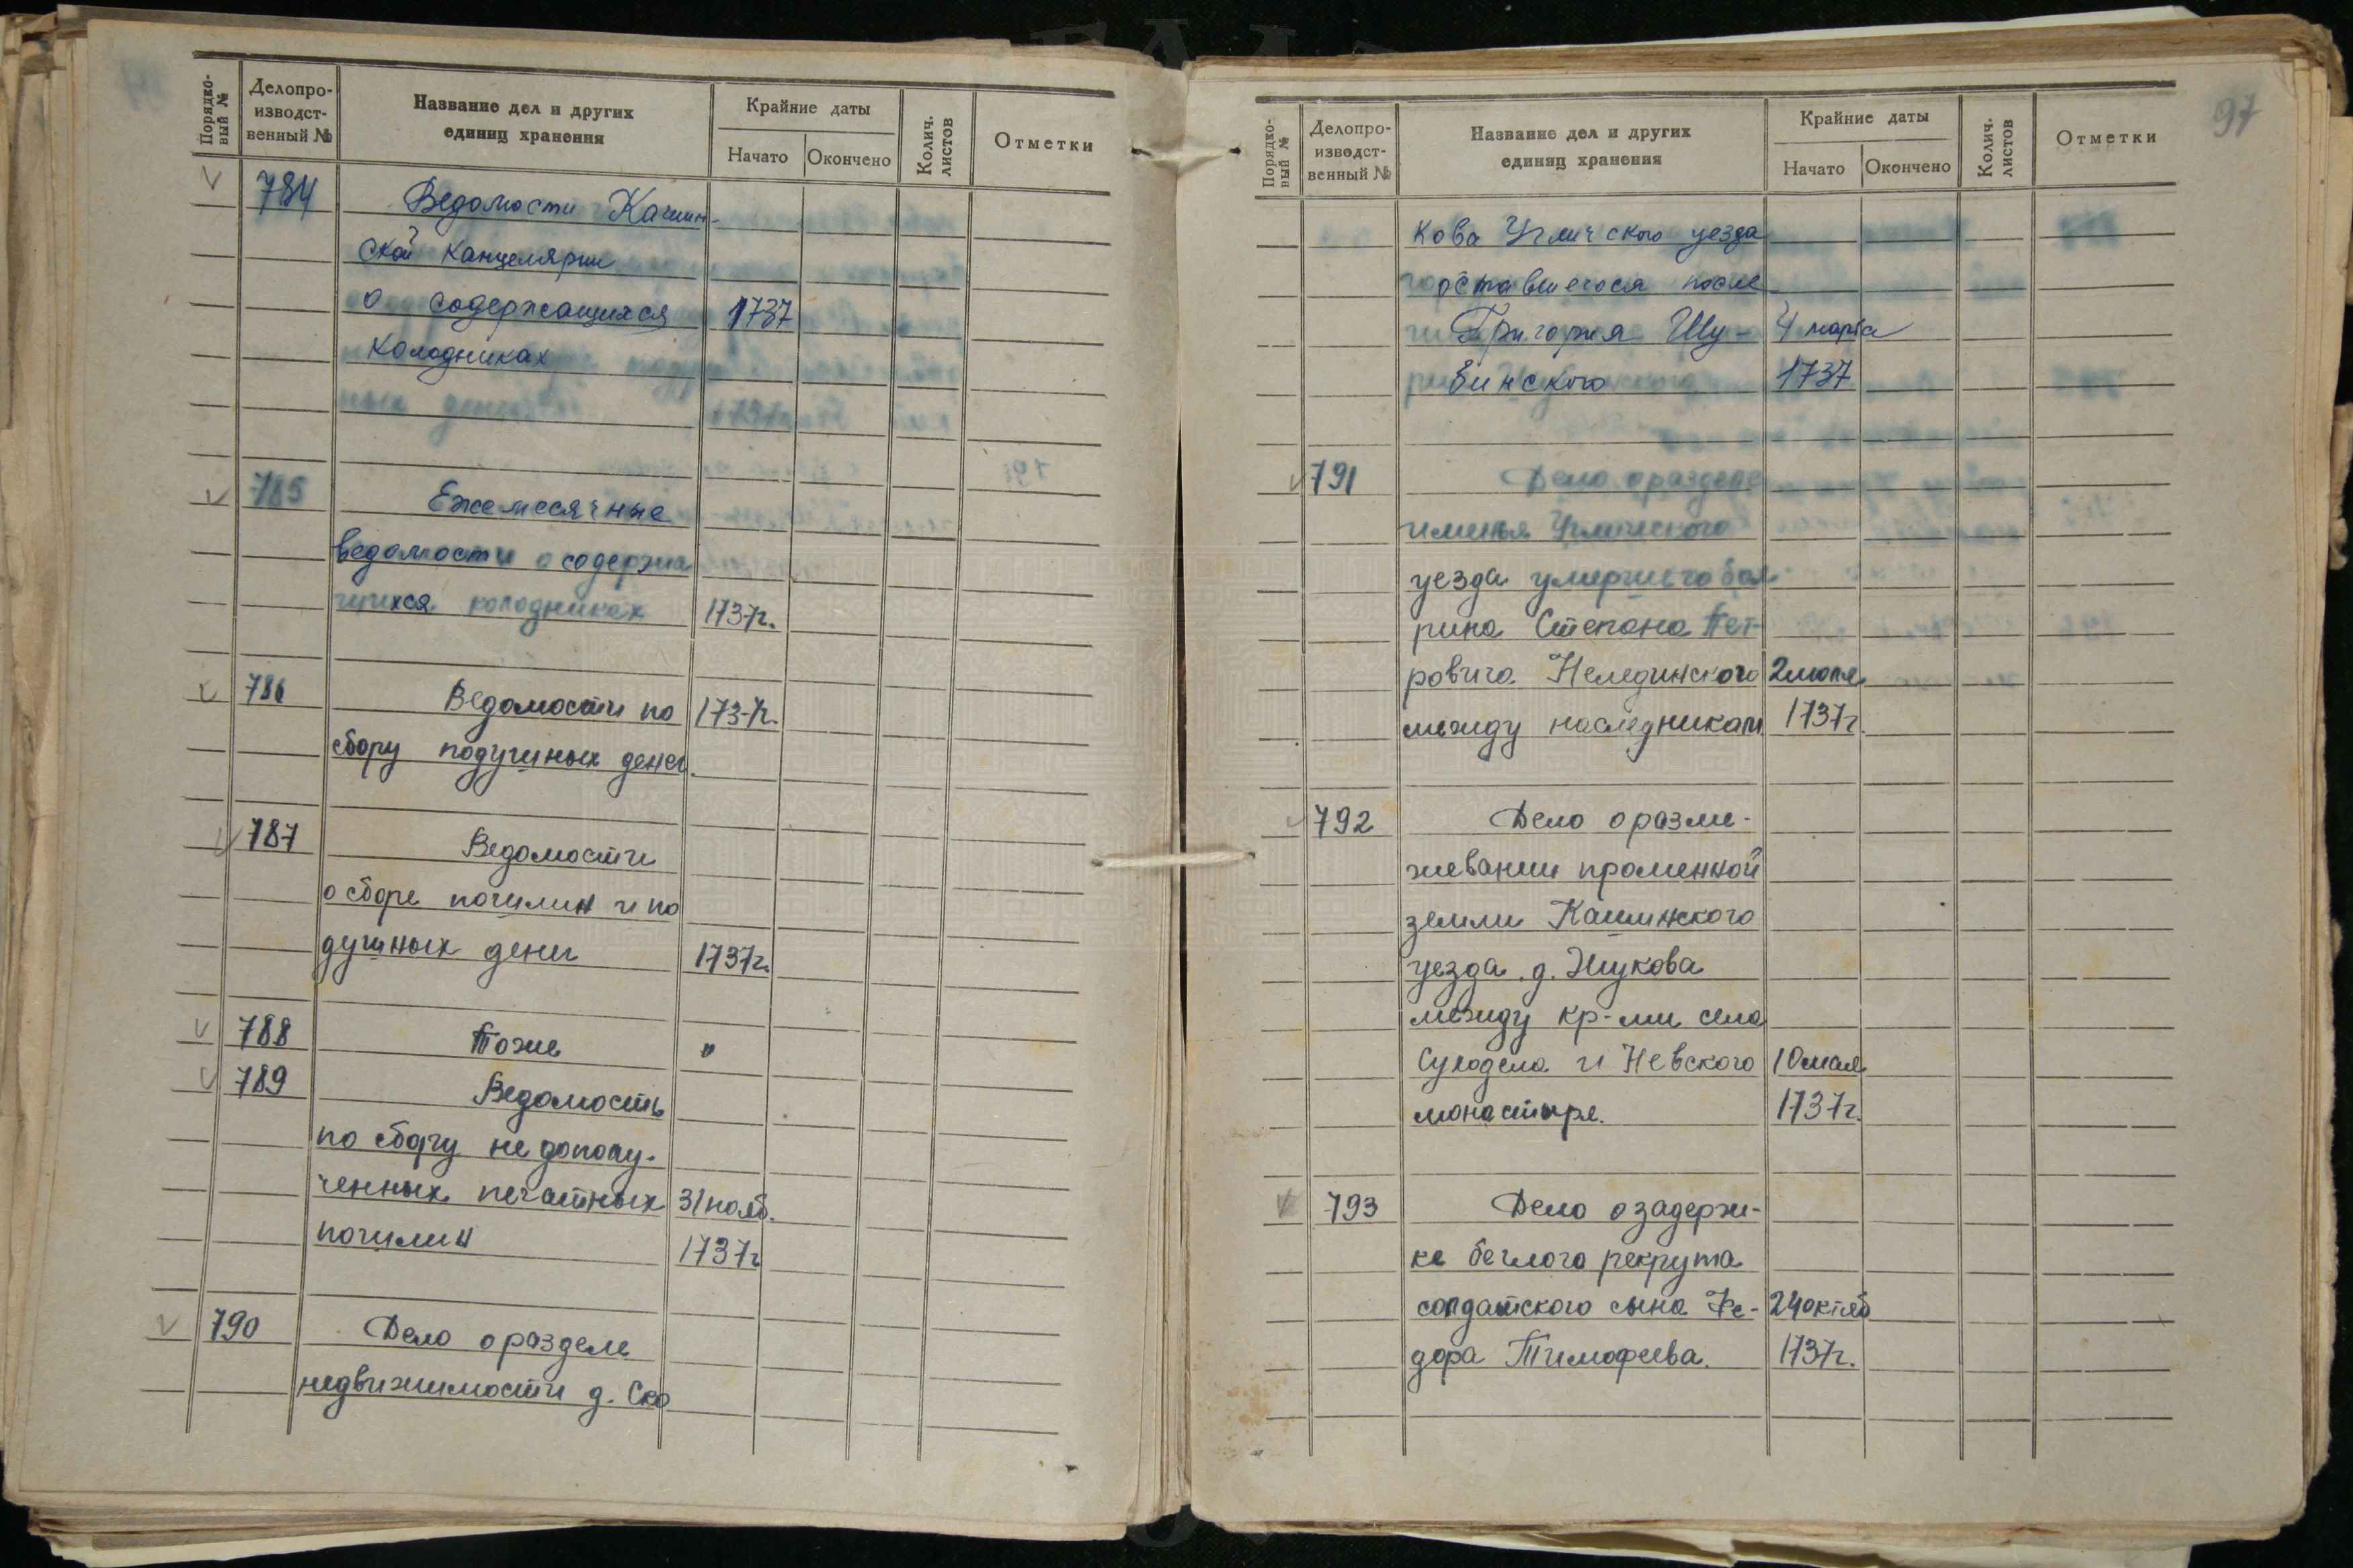 Порядковый №
Делопроизводственный №
Название дел и других единиц хранения
Крайние даты
Начато
Окончено
Колич. листов
Отметки
784 Ведомости Кашин-
ской канцелярии
о содержащихся 1737
колодниках
785 Ежемесячные
ведомости о содержа
щихся колодниках 1737г.
786 Ведомости по 1737г.
сбору подушных денег
787 Ведомости
о сборе пошлин и по
душных денег 1737г.
788 Тоже "
789 Ведомость
по сбору недополу-
ченных печатных 31 нояб.
пошлин 1737г
790 Дело о разделе
недвижимости д. Ско
97
Порядковый №
Делопроизводственный №
Название дел и других единиц хранения
Крайние даты
Начато
Окончено
Колич. листов
Отметки
кова Угличского уезда
оставшегося после
Григория Шу- 4 марта
винского 1737
791 Дело о разделе
именья Угличского
уезда умершего боя
рина Степана Пет-
ровича Нелединского 2 июля
между наследниками 1737г.
792 Дело о разме-
жевании променной
земли Кашинского
уезда д. Жукова
между кр-ми села
Суходола и Невского 10 мая
монастыря. 1737г.
793 Дело о задерж-
ке беглого рекрута
солдатского сына Фе- 24 октяб
дора Тимофеева. 1737г.